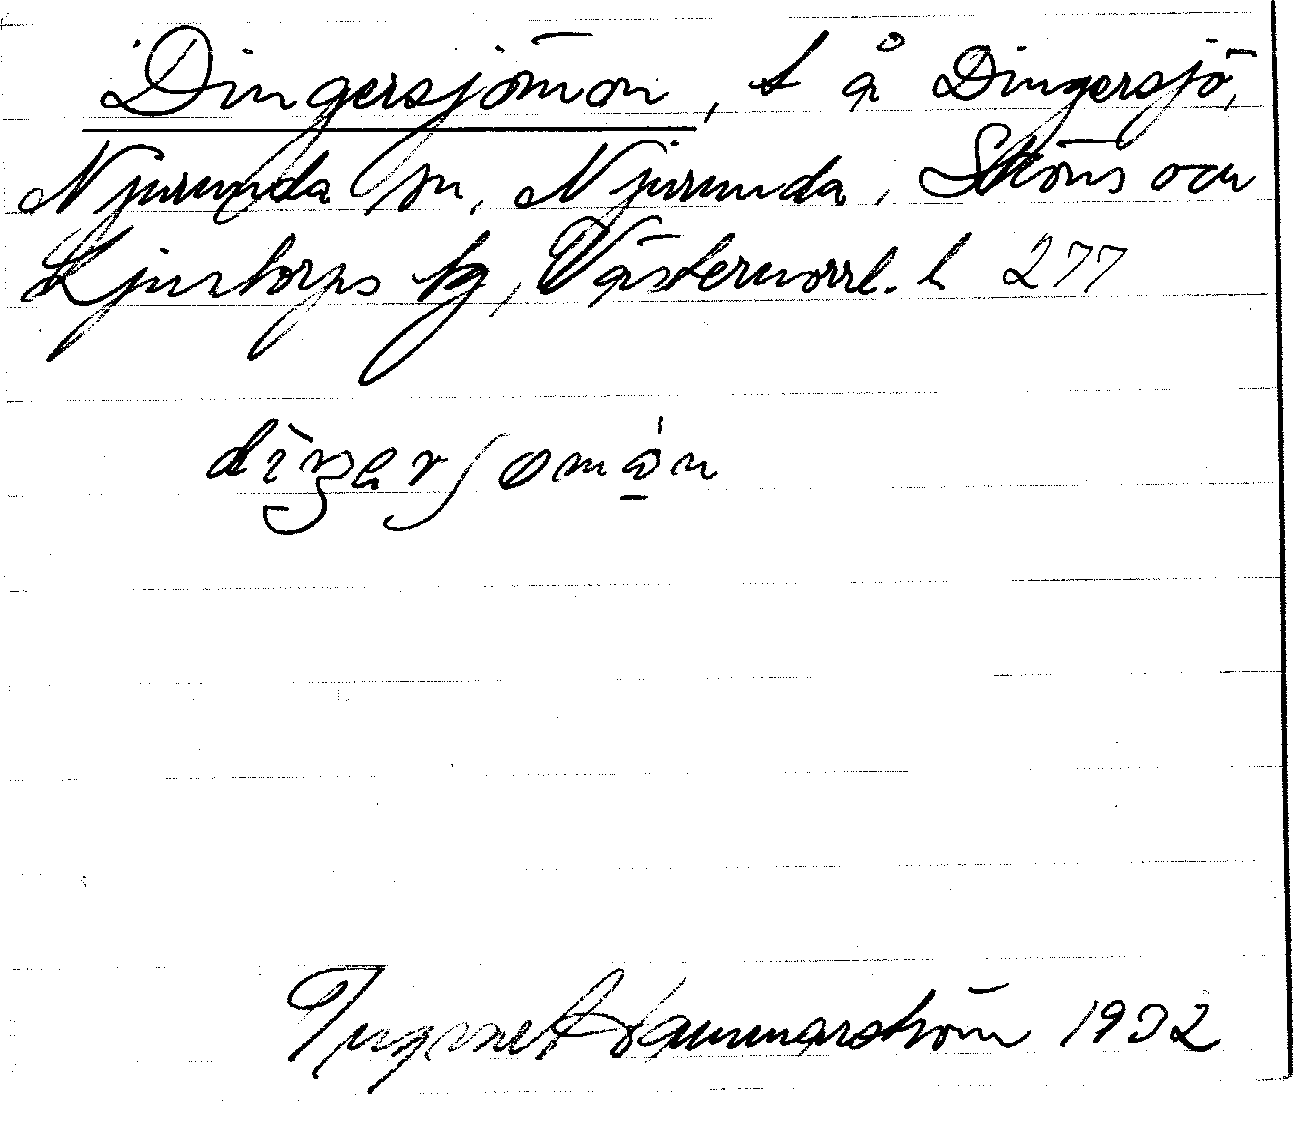 Dingersjömon, t å Dingersjö,
Njurunda sn, Njurunda, Sköns och
Ljustorps tg, Västernorrl. l 277
Ingemar Hammarström 1932